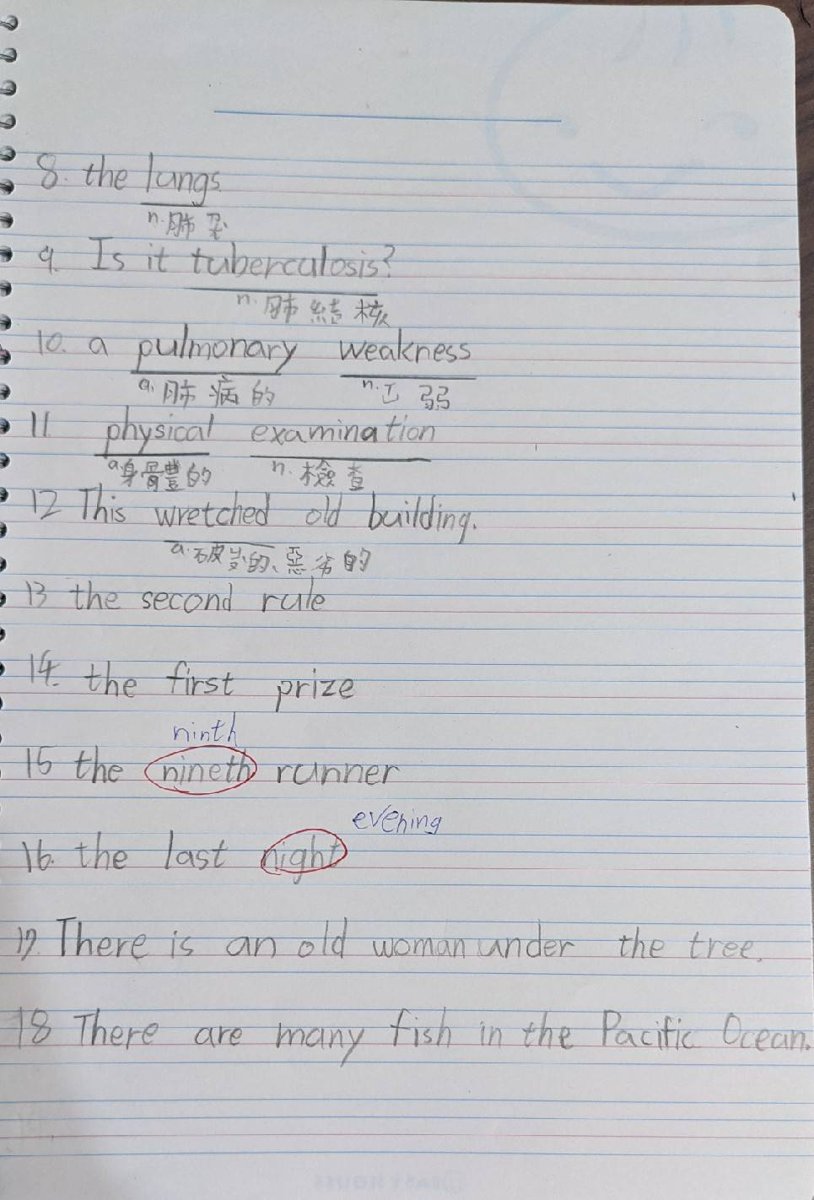 8. the lungs
n. 肺
9. Is it tuberculosis?
n. 肺結核
10. a pulmonary weakness
a. 肺病的 n. 弱
11 physical examination
a 身體的 n. 檢查
12 This wretched old building.
a. 破的、惡劣的
13 the second rule
14. the first prize
ninth
15 the nineth runner
evening
16. the last night
17. There is an old woman under the tree.
18 There are many fish in the Pacific Ocean.